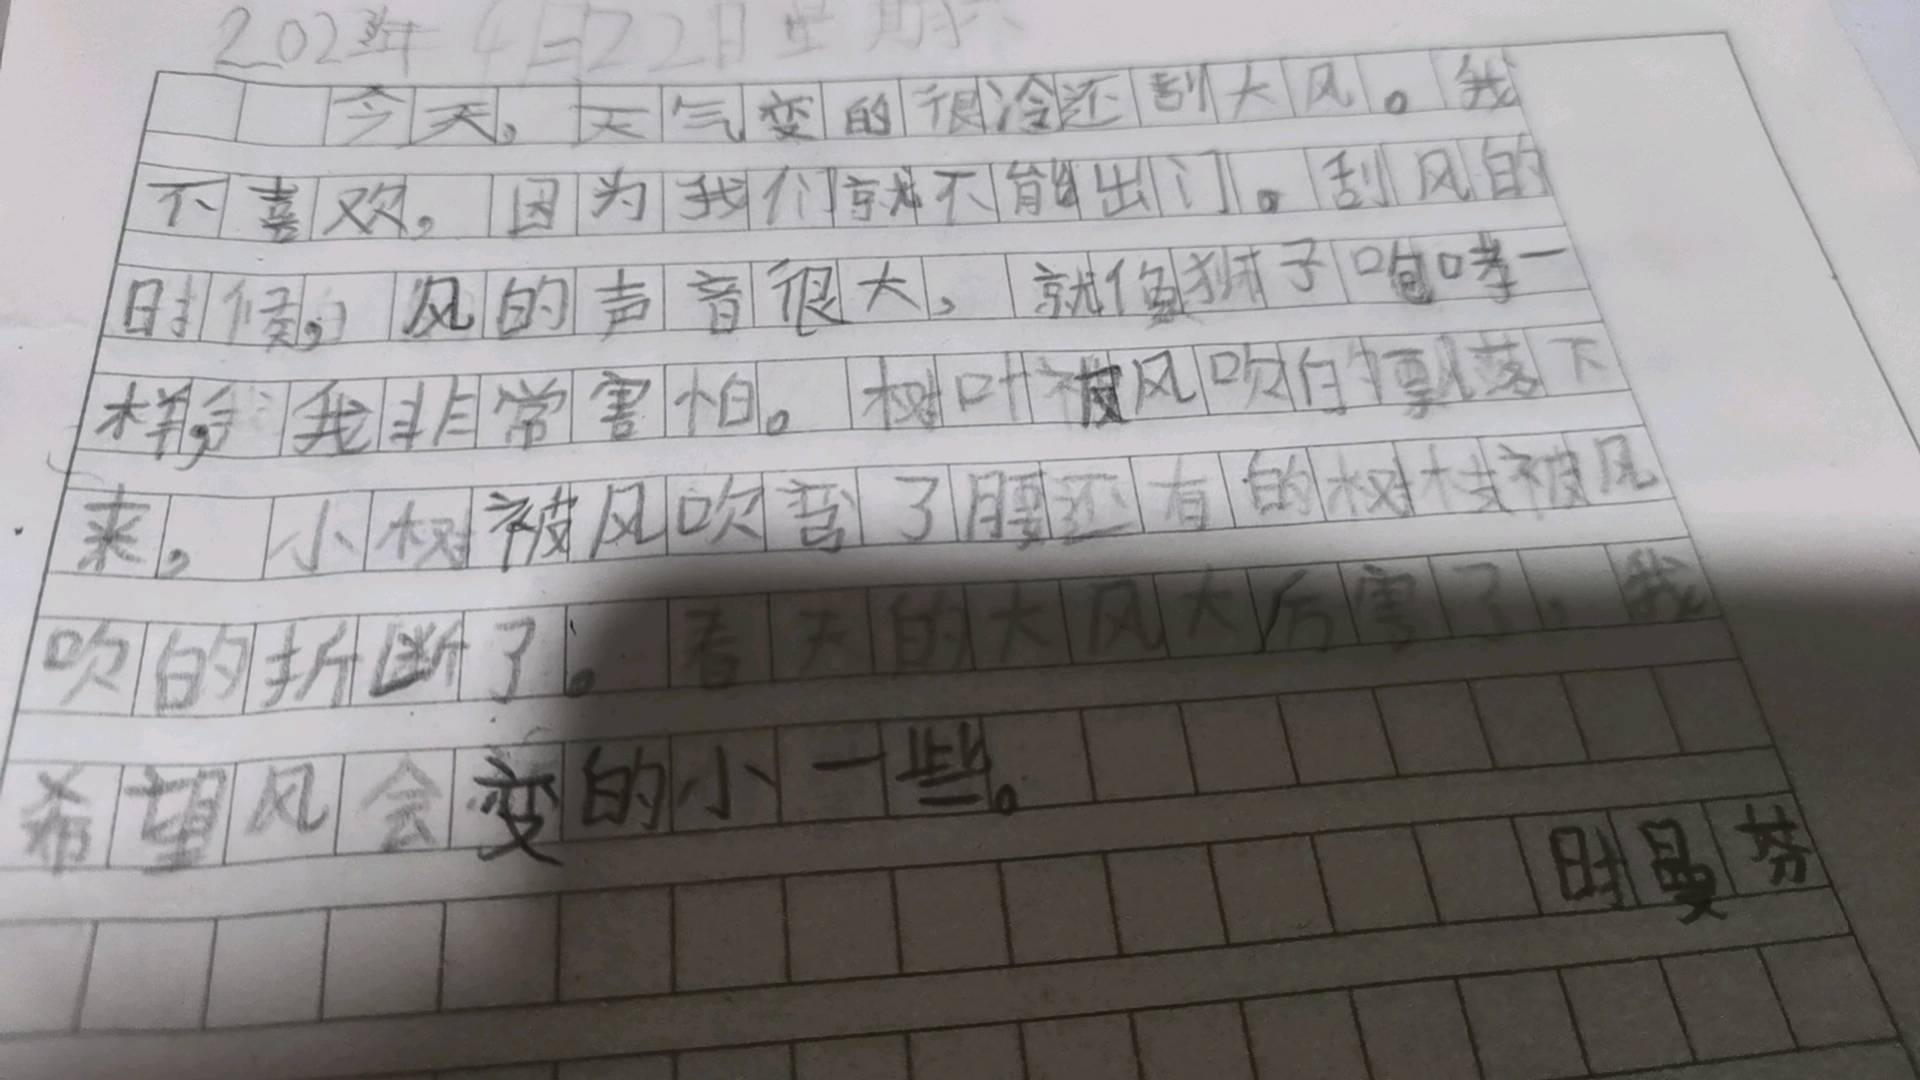 2023年4月22日星期六
今天，天气变的很冷还刮大风。我
不喜欢，因为我们就不能出门。刮风的
时候，风的声音很大，就像狮子咆哮一
样，我非常害怕。树叶被风吹的飘落下
来，小树被风吹弯了腰还有的树枝被风
吹的折断了。春天的大风太厉害了，我
希望风会变的小一些。
时曼芬